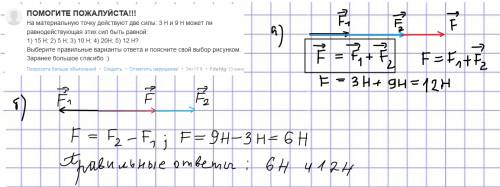 ПОМОГИТЕ ПОЖАЛУЙСТА!!!
На материальную точку действуют две силы: 3 Н и 9 Н может ли
равнодействующая этих сил быть равной:
1) 15 Н; 2) 5 Н; 3) 10 Н; 4) 20Н; 5) 12 Н?
Выберите правильные варианты ответа и поясните свой выбор рисунком.
Заранее большое спасибо :)
а) F₁ F₂ F
F = F₁ + F₂ F = F₁ + F₂
F = 3Н + 9Н = 12Н
б) F₁ F F₂
F = F₂ - F₁; F = 9Н - 3Н = 6Н
Правильные ответы: 6Н и 12Н